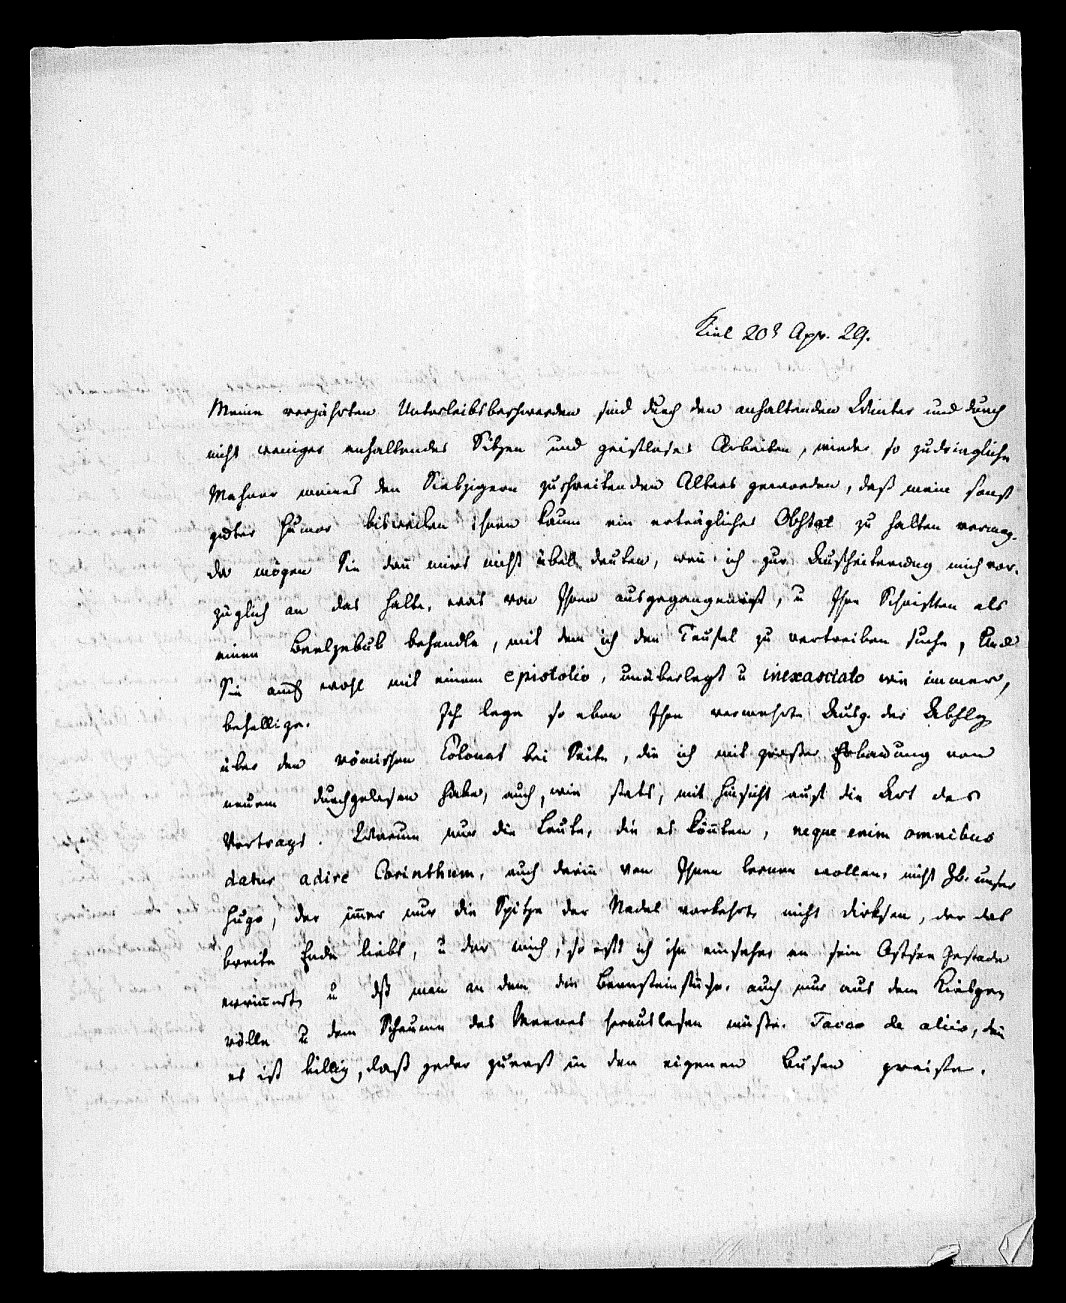 Kiel 20t Apr. 29.
Meine verjährten Unterleibsbeschwerden sind durch den anhaltenden Winter und durch
nicht weniger anhaltendes Sitzen und geistloses Arbeiten, wieder so zudringliche
Mahner meines den Siebzigern zuschreitenden Alters geworden, daß mein sonst
guter Humor bisweilen ihnen kaum ein erträgliches Obstat zu halten vermag.
Da mögen Sie denn mirs nicht übel deuten, wenn ich zur Aufheiterung mich vor
züglich an das halte, was von Ihnen ausgegangen ist, u Ihre Schriften als
einen Beelzebub behandle, mit dem ich den Teufel zu vertreiben suche,
Sie auch wohl mit einem epistolio, unüberlegt u inexasciato wie immer,
behellige. Ich lege so eben Ihre vermehrte Ausg. der Abhlg
über den römischen Colonat bei Seite, die ich mit großer Erbauung von
neuem durchgelesen habe, auch, wie stets, mit Hinsicht auf die Art des
Vortrags. Warum nur die Leute, die es könten, neque enim omnibus
datur adire Corinthum, auch darin von Ihnen lernen wollen, nicht zb. unser
Hugo, der immer nur die Spitze der Nadel vorkehrt, nicht Dirksen, der das
breite Ende liebt, u der mich, so oft ich ihn einsehe, an sein Ostsee Gestade
erinnert, u daß man an dem die Bernsteinstücke auch nur aus dem Kiesge
rölle u dem Schaume des Meeres herauslesen müßte. Taceo de aliis, den
es ist billig, daß jeder zuerst in den eigenen Busen greife.